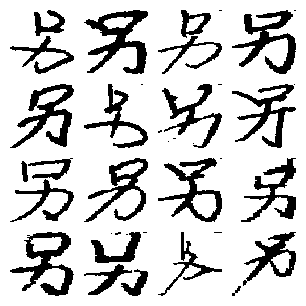 另另另另
另另另另
另另另另
另另另另